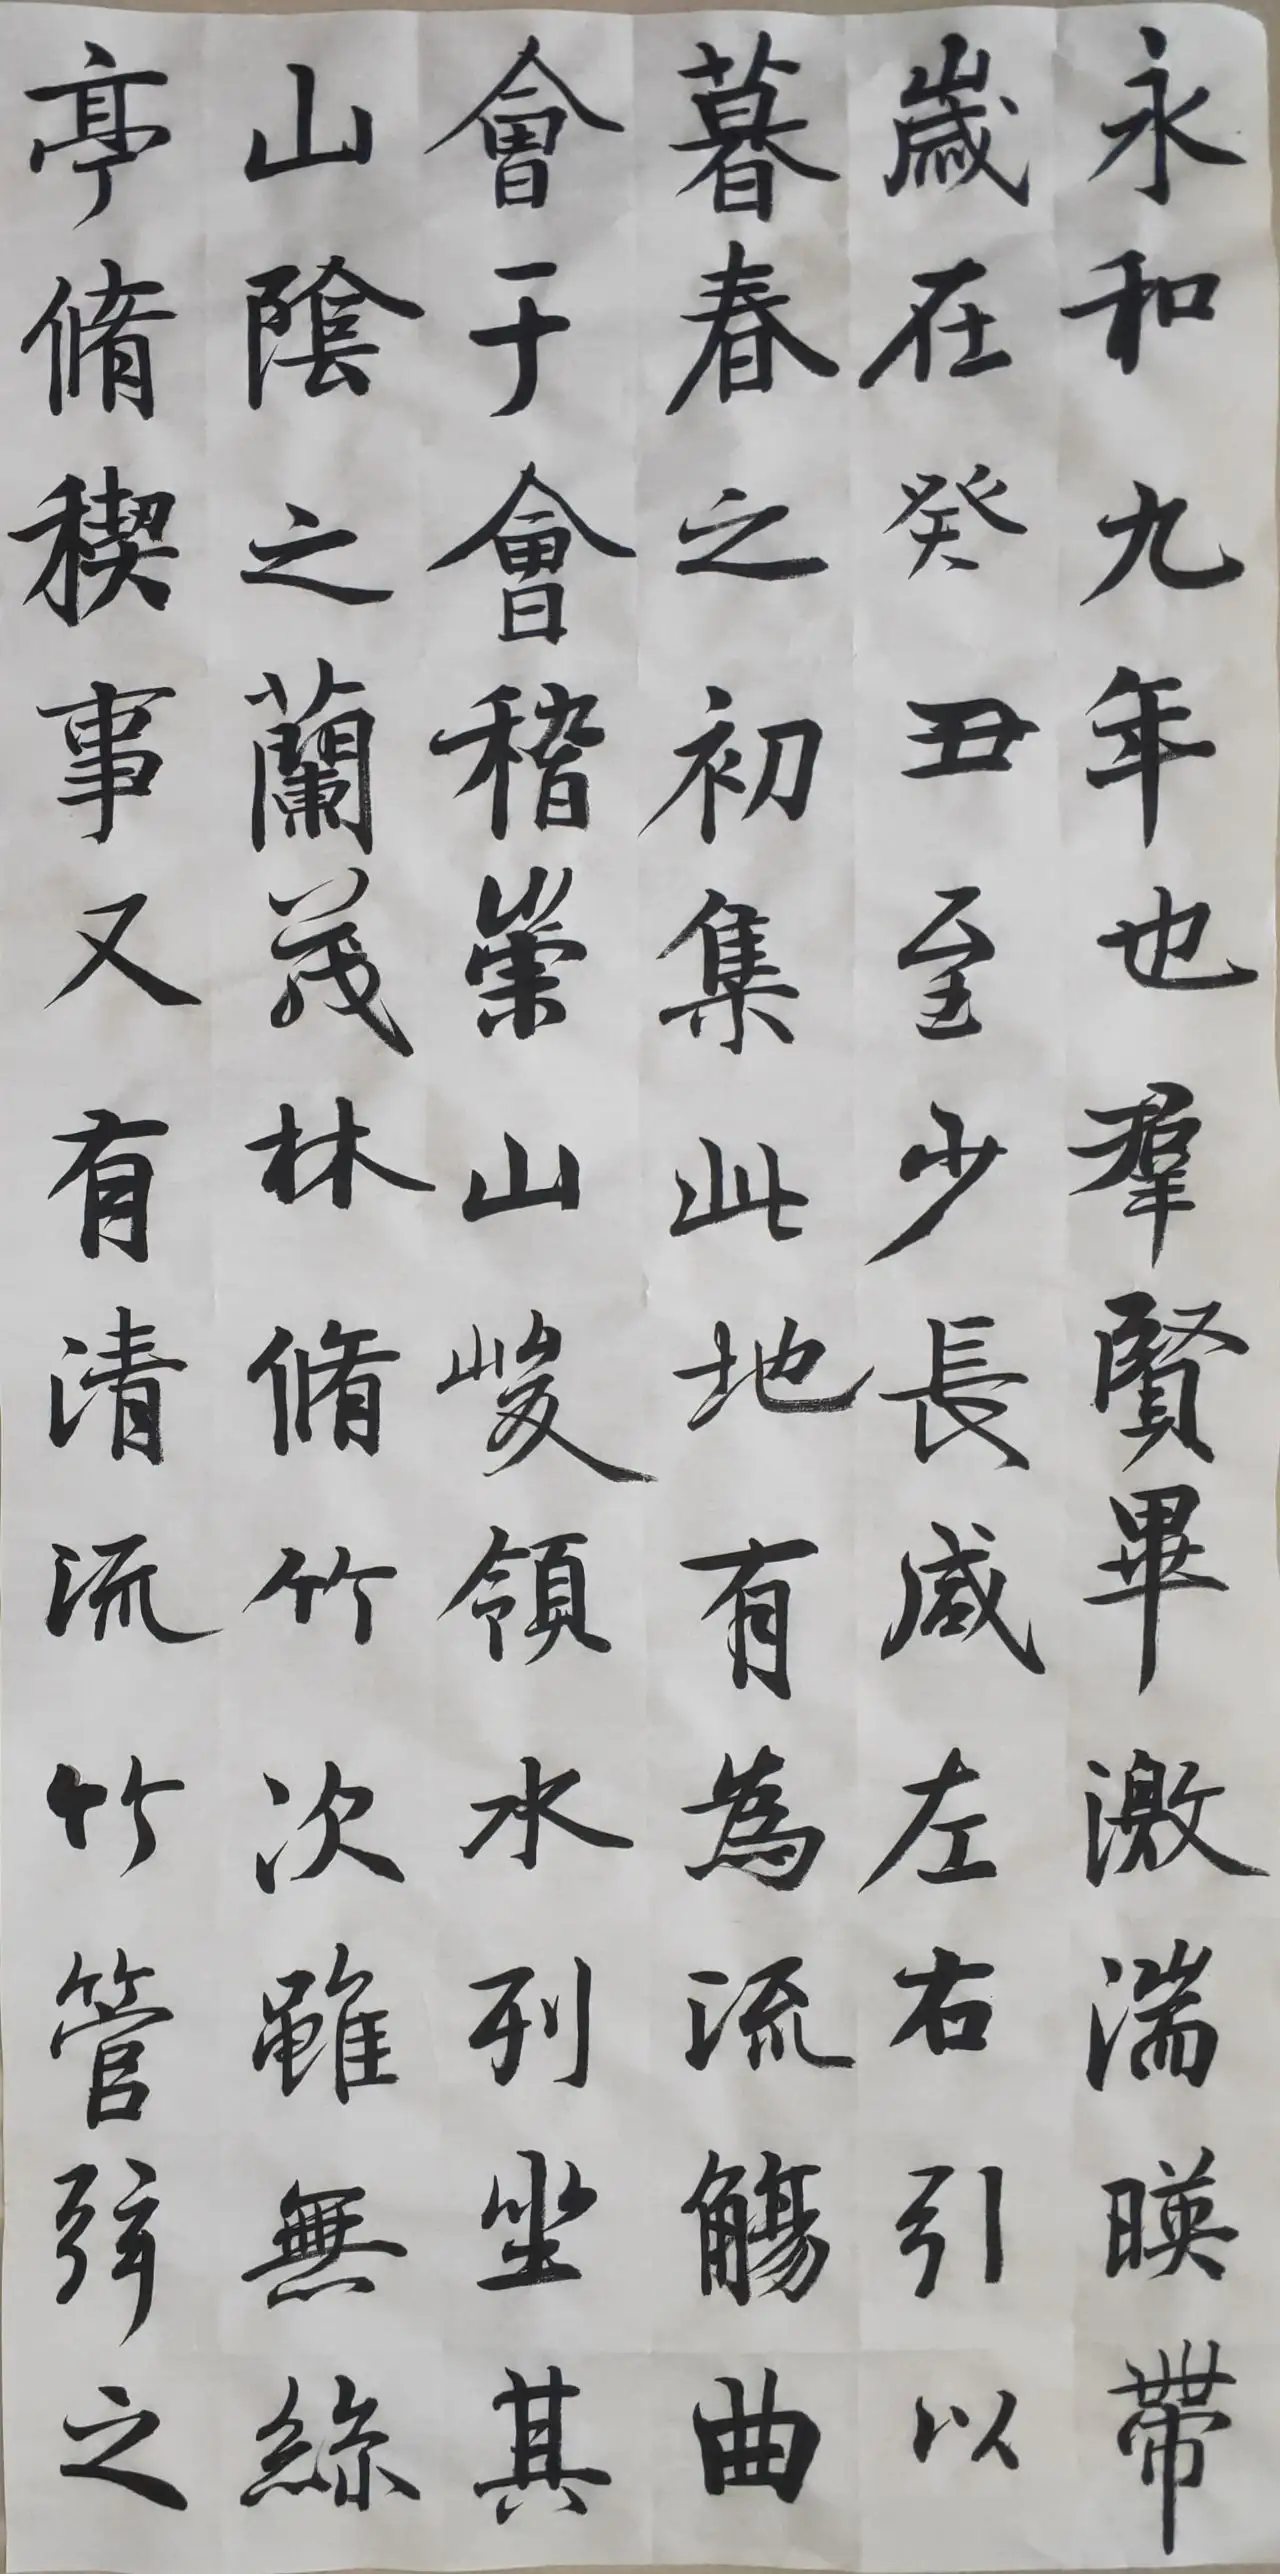 永和九年也羣賢畢激湍暎帶
歲在癸丑至少長咸左右引以
暮春之初集此地有為流觴曲
會于會稽崇山峻領水列坐其
山陰之蘭茂林脩竹次雖無絲
亭脩稧事又有清流竹管弦之